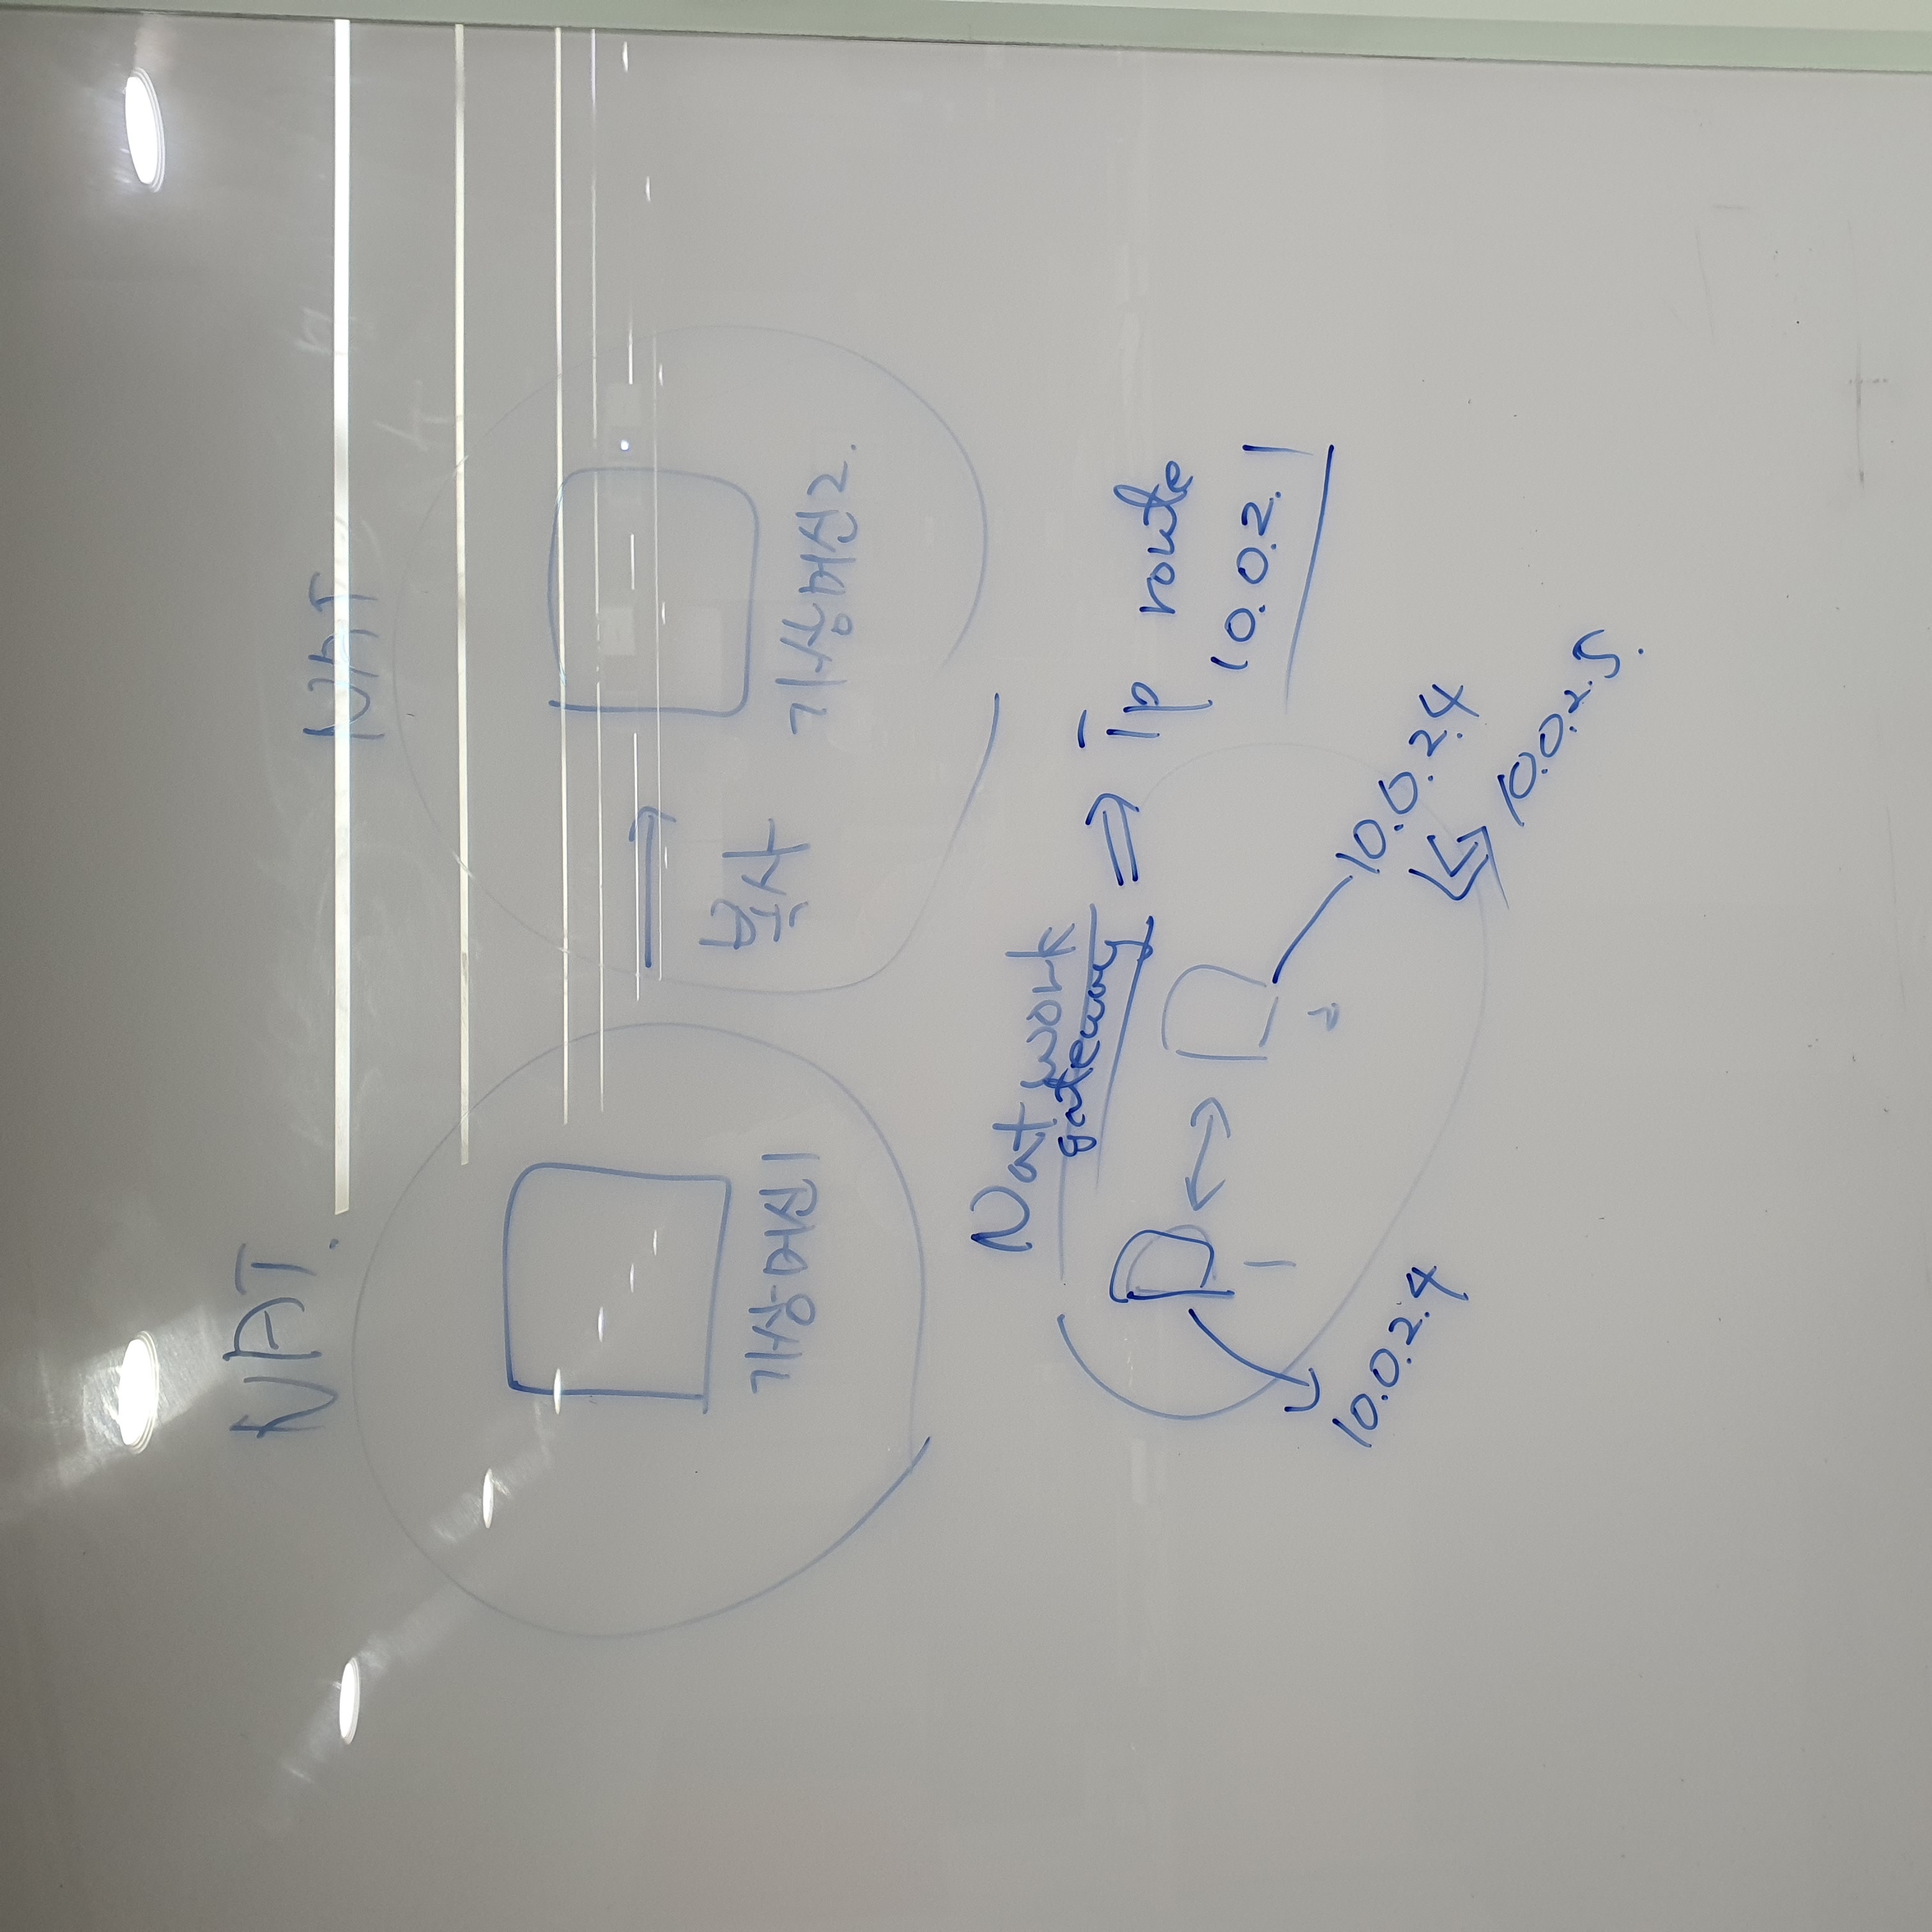 NAT.
NAT
가상머신1
복사
가상머신2.
Natwork
gateway
ip route
10.0.2.1
1
2
10.0.2.4
10.0.2.4
10.0.2.5.